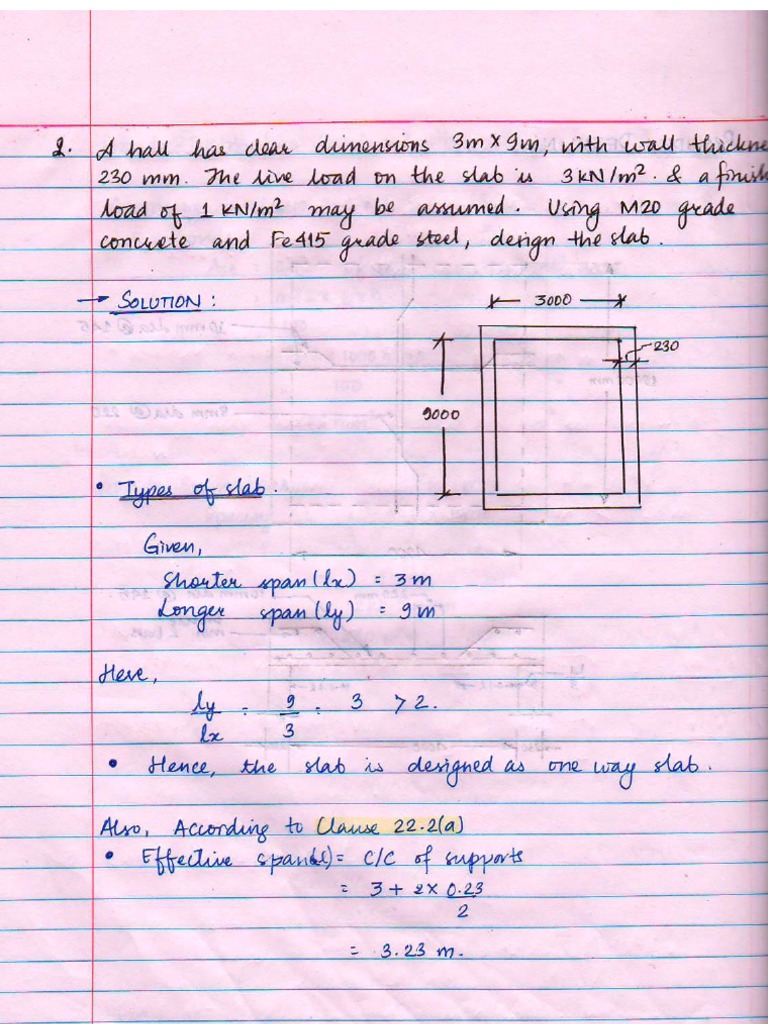 2. A hall has clear dimensions 3m x 9m, with wall thickne
230 mm. The live load on the slab is 3 kN/m². & a finish
load of 1 KN/m² may be assumed. Using M20 grade
concrete and Fe415 grade steel, design the slab.
→ SOLUTION :
3000
230
9000
• Types of slab.
Given,
Shorter span (lx) = 3 m
Longer span (ly) = 9 m
Here,
ly/lx = 9/3 = 3 > 2.
• Hence, the slab is designed as one way slab.
Also, According to Clause 22.2(a)
• Effective span(l) = C/C of supports
= 3 + 2 x 0.23/2
= 3.23 m.